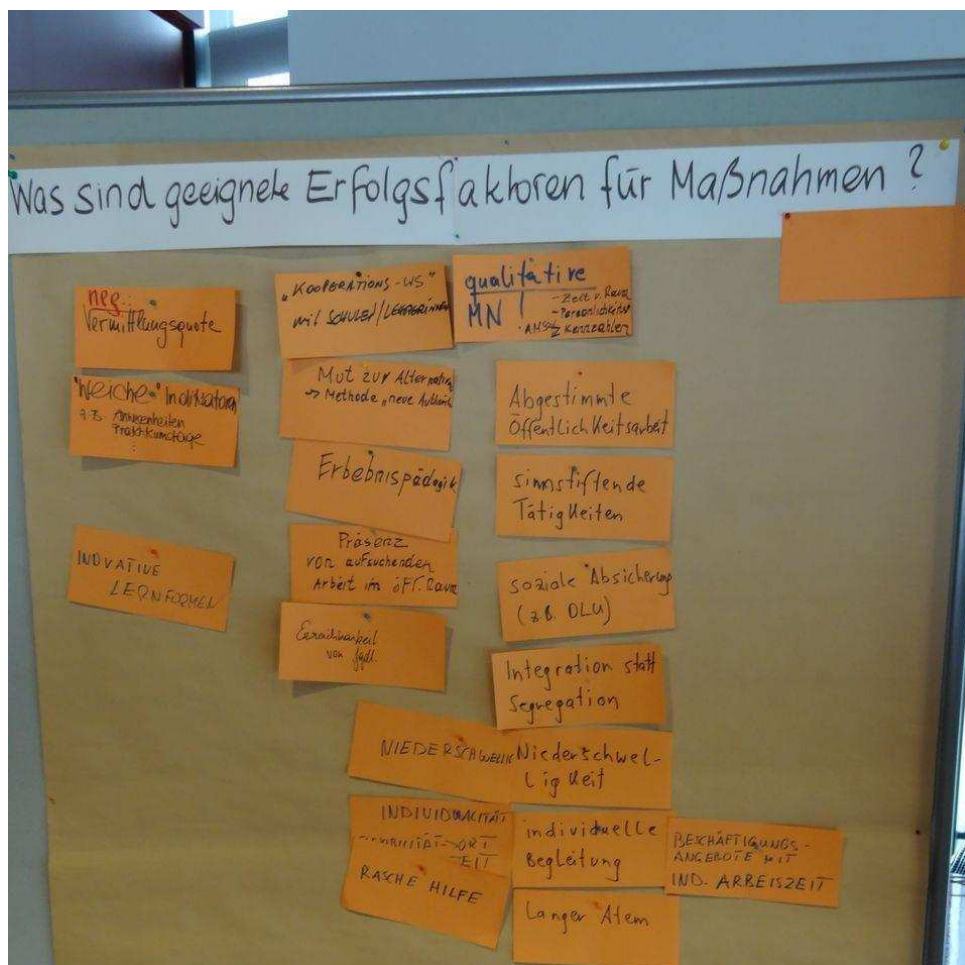 Was sind geeignete Erfolgsfaktoren für Maßnahmen ?
neg.:
Vermittlungsquote
"Weiche" Indikatoren
z.B. Anwesenheiten
Praktikumstage
:
INOVATIVE
LERNFORMEN
"KOOPERATIONS-WS"
mit SCHULEN/LEHRERINNEN
Mut zur Alternative
-> Methode "neue
Erbebnispädagogik
Präsenz
von aufsuchenden
Arbeit im öff. Raum
Erreichbarkeit
von Jgdl.
qualitative
MN !
- Zeit v. Raum
- Persönlichkeits
Kennzahlen
Abgestimmte
Öffentlichkeitsarbeit
sinnstiftende
Tätigkeiten
soziale Absicherung
(z.B. DLU)
Integration statt
Segregation
NIEDERSCHWELLIG
Niederschwel-
ligkeit
INDIVIDUALITÄT
ORT
ZEIT
RASCHE HILFE
individuelle
Begleitung
Langer Atem
BESCHÄFTIGUNGS-
ANGEBOTE MIT
IND. ARBEISZEIT